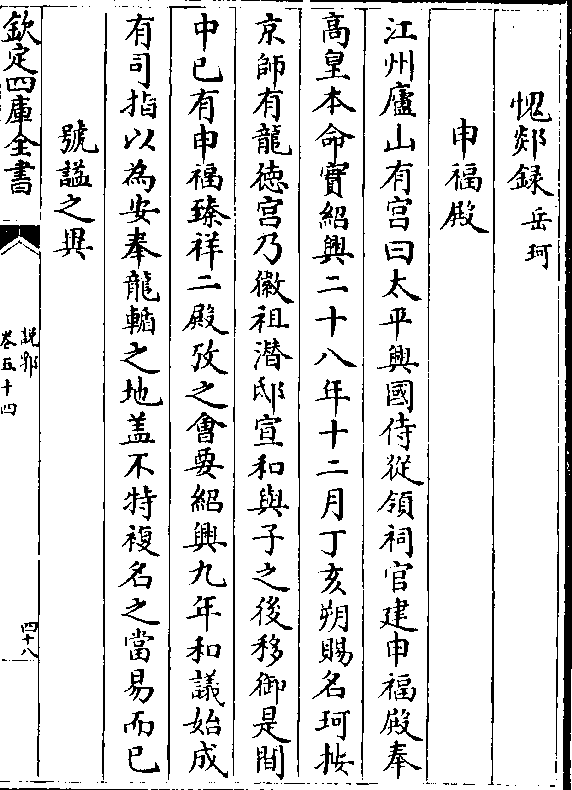 愧郯録岳珂
申福殿
江州廬山有宫曰太平興國侍從領祠官建申福殿奉
高皇本命實紹興二十八年十二月丁亥朔賜名珂按
京師有龍德宫乃徽祖潛邸宣和與子之後移御是間
中已有申福臻祥二殿攷之會要紹興九年和議始成
有司指以為安奉龍輴之地盖不特複名之當易而已
號諡之異
欽定四庫全書
說郛
卷五十四
四十八